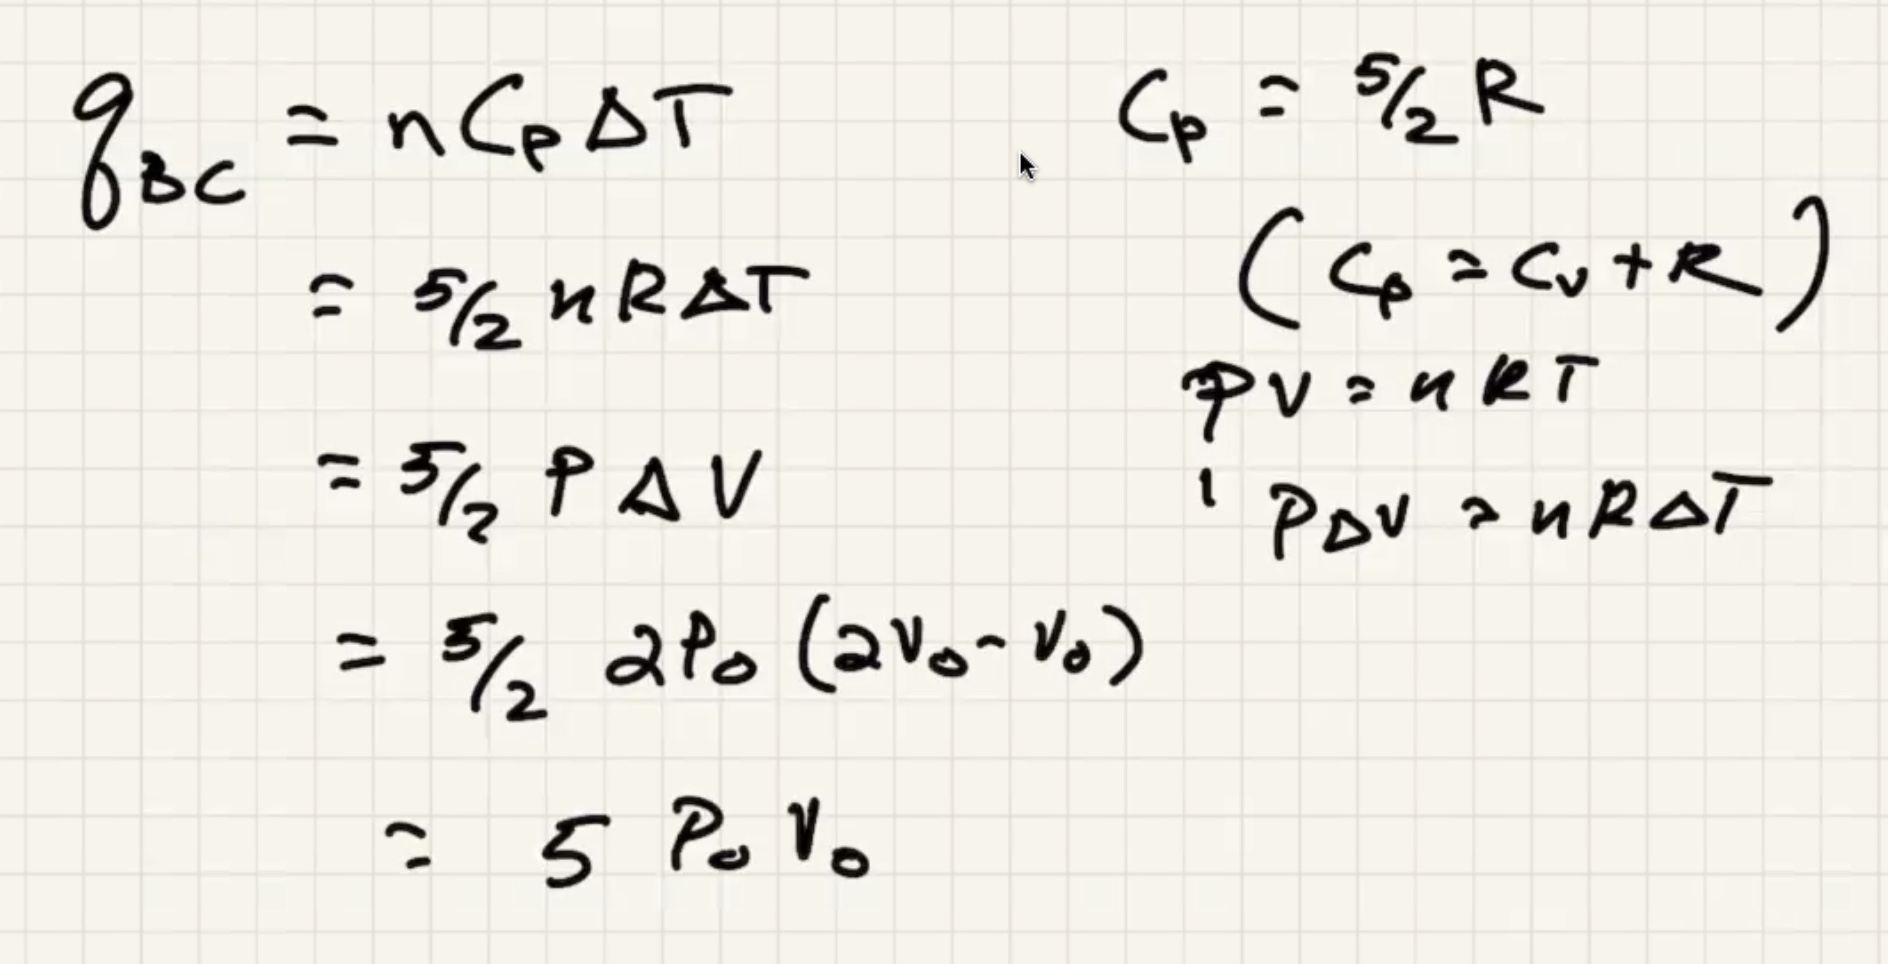 q_BC = nC_p ΔT
= 5/2 nRΔT
= 5/2 PΔV
= 5/2 2P_0 (2V_0 - V_0)
= 5 P_0 V_0
C_p = 5/2 R
(C_p = C_v + R)
PV = nRT
PΔV = nRΔT